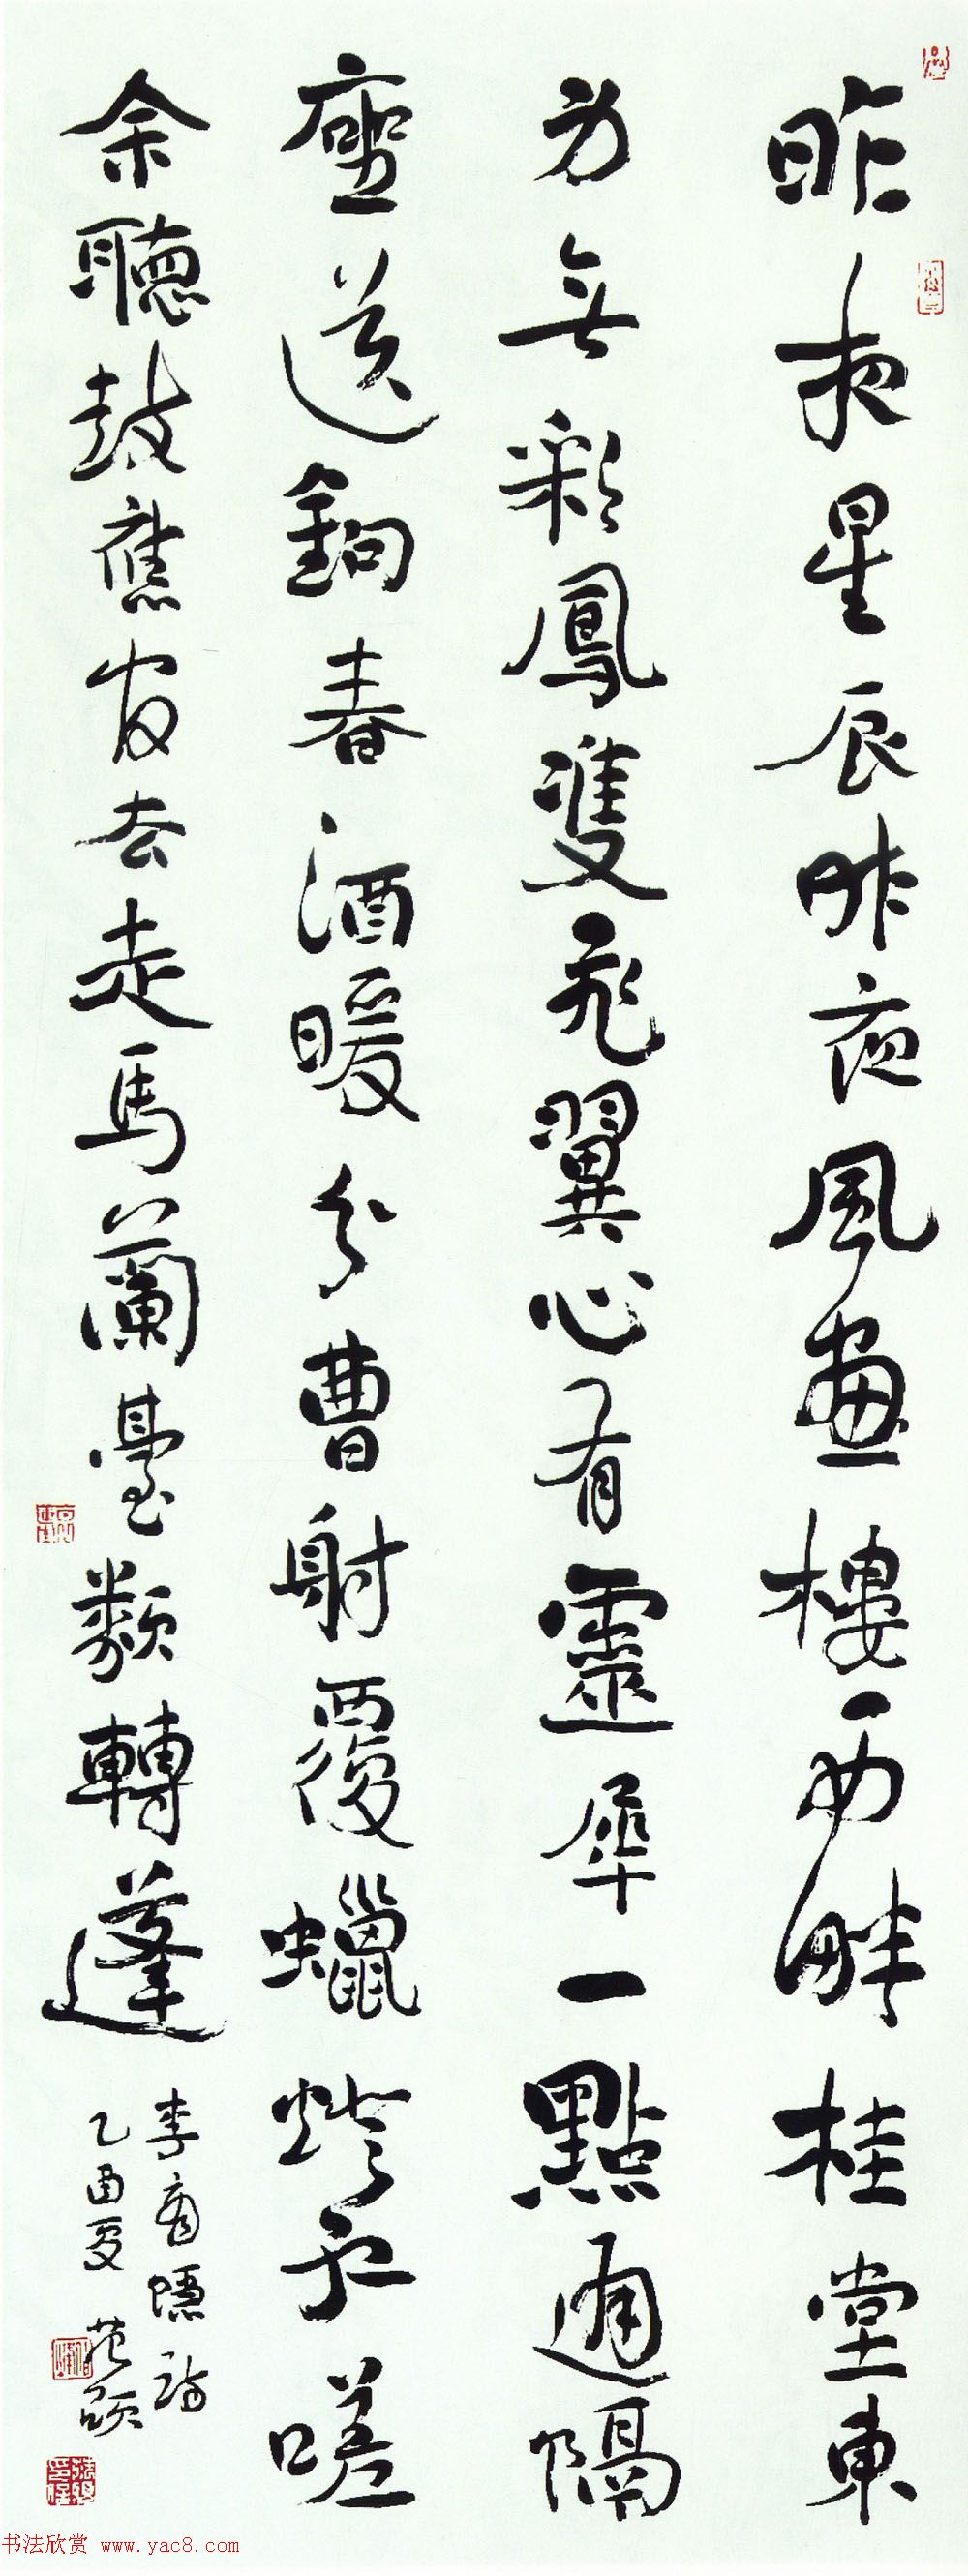 昨夜星辰昨夜風畫樓西畔桂堂東
身無彩鳳雙飛翼心有靈犀一點通隔
座送鉤春酒暖分曹射覆蠟燈紅嗟
余聽鼓應官去走馬蘭臺類轉蓬
李商隱詩
乙酉夏 范
书法欣赏 www.yac8.com